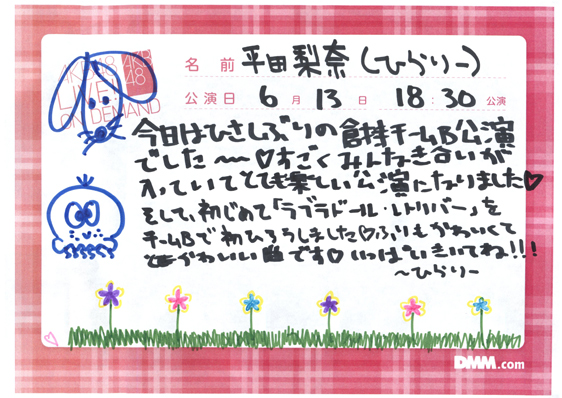 AKB48 LIVE!! ON DEMAND
AKB48
名前 平田梨奈(ひらりー)
公演日 6月13日 18:30 公演
今日はひさしぶりの倉持チームB公演
でした〜♡すごくみんなき合いが
入っていてとても楽しい公演になりました♡
そして、初じめて「ラブラドール・レトリバー」を
チームBで初ひろうしました♡ふりもかわいくて
かわいい曲です♡いっぱいきいてね!!!
〜ひらりー
DMM.com